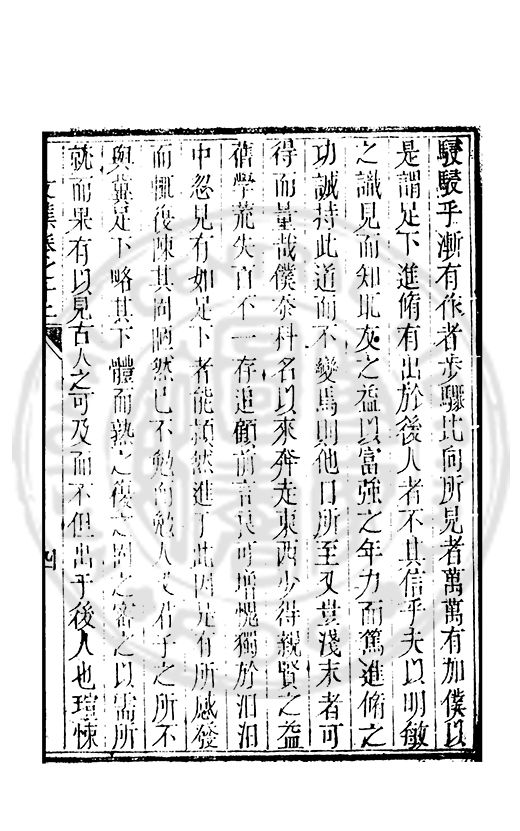 駸駸乎漸有作者步驟比向所見者萬萬有加僕以
是謂足下進脩有出於後人者不其信乎夫以明敏
之識見而知取友之益以富強之年力而篤進脩之
功誠持此道而不變焉則他日所至又豈淺末者可
得而量哉僕忝科名以來奔走東西少得親賢之益
舊學荒失百不一存追顧前言良可增愧獨於汩汩
中忽見有如足下者能頴然進于此因是有所感發
而輒復陳其固陋然已不勉而勉人又君子之所不
與冀足下略其下體而熟之復之圖之審之以需所
就而果有以見古人之可及而不但出于後人也瑄悚
文集卷之十二
四